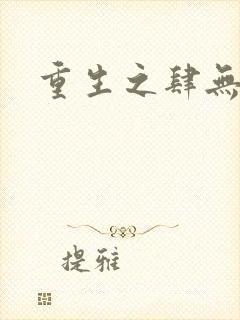 重生之肆無
提雅